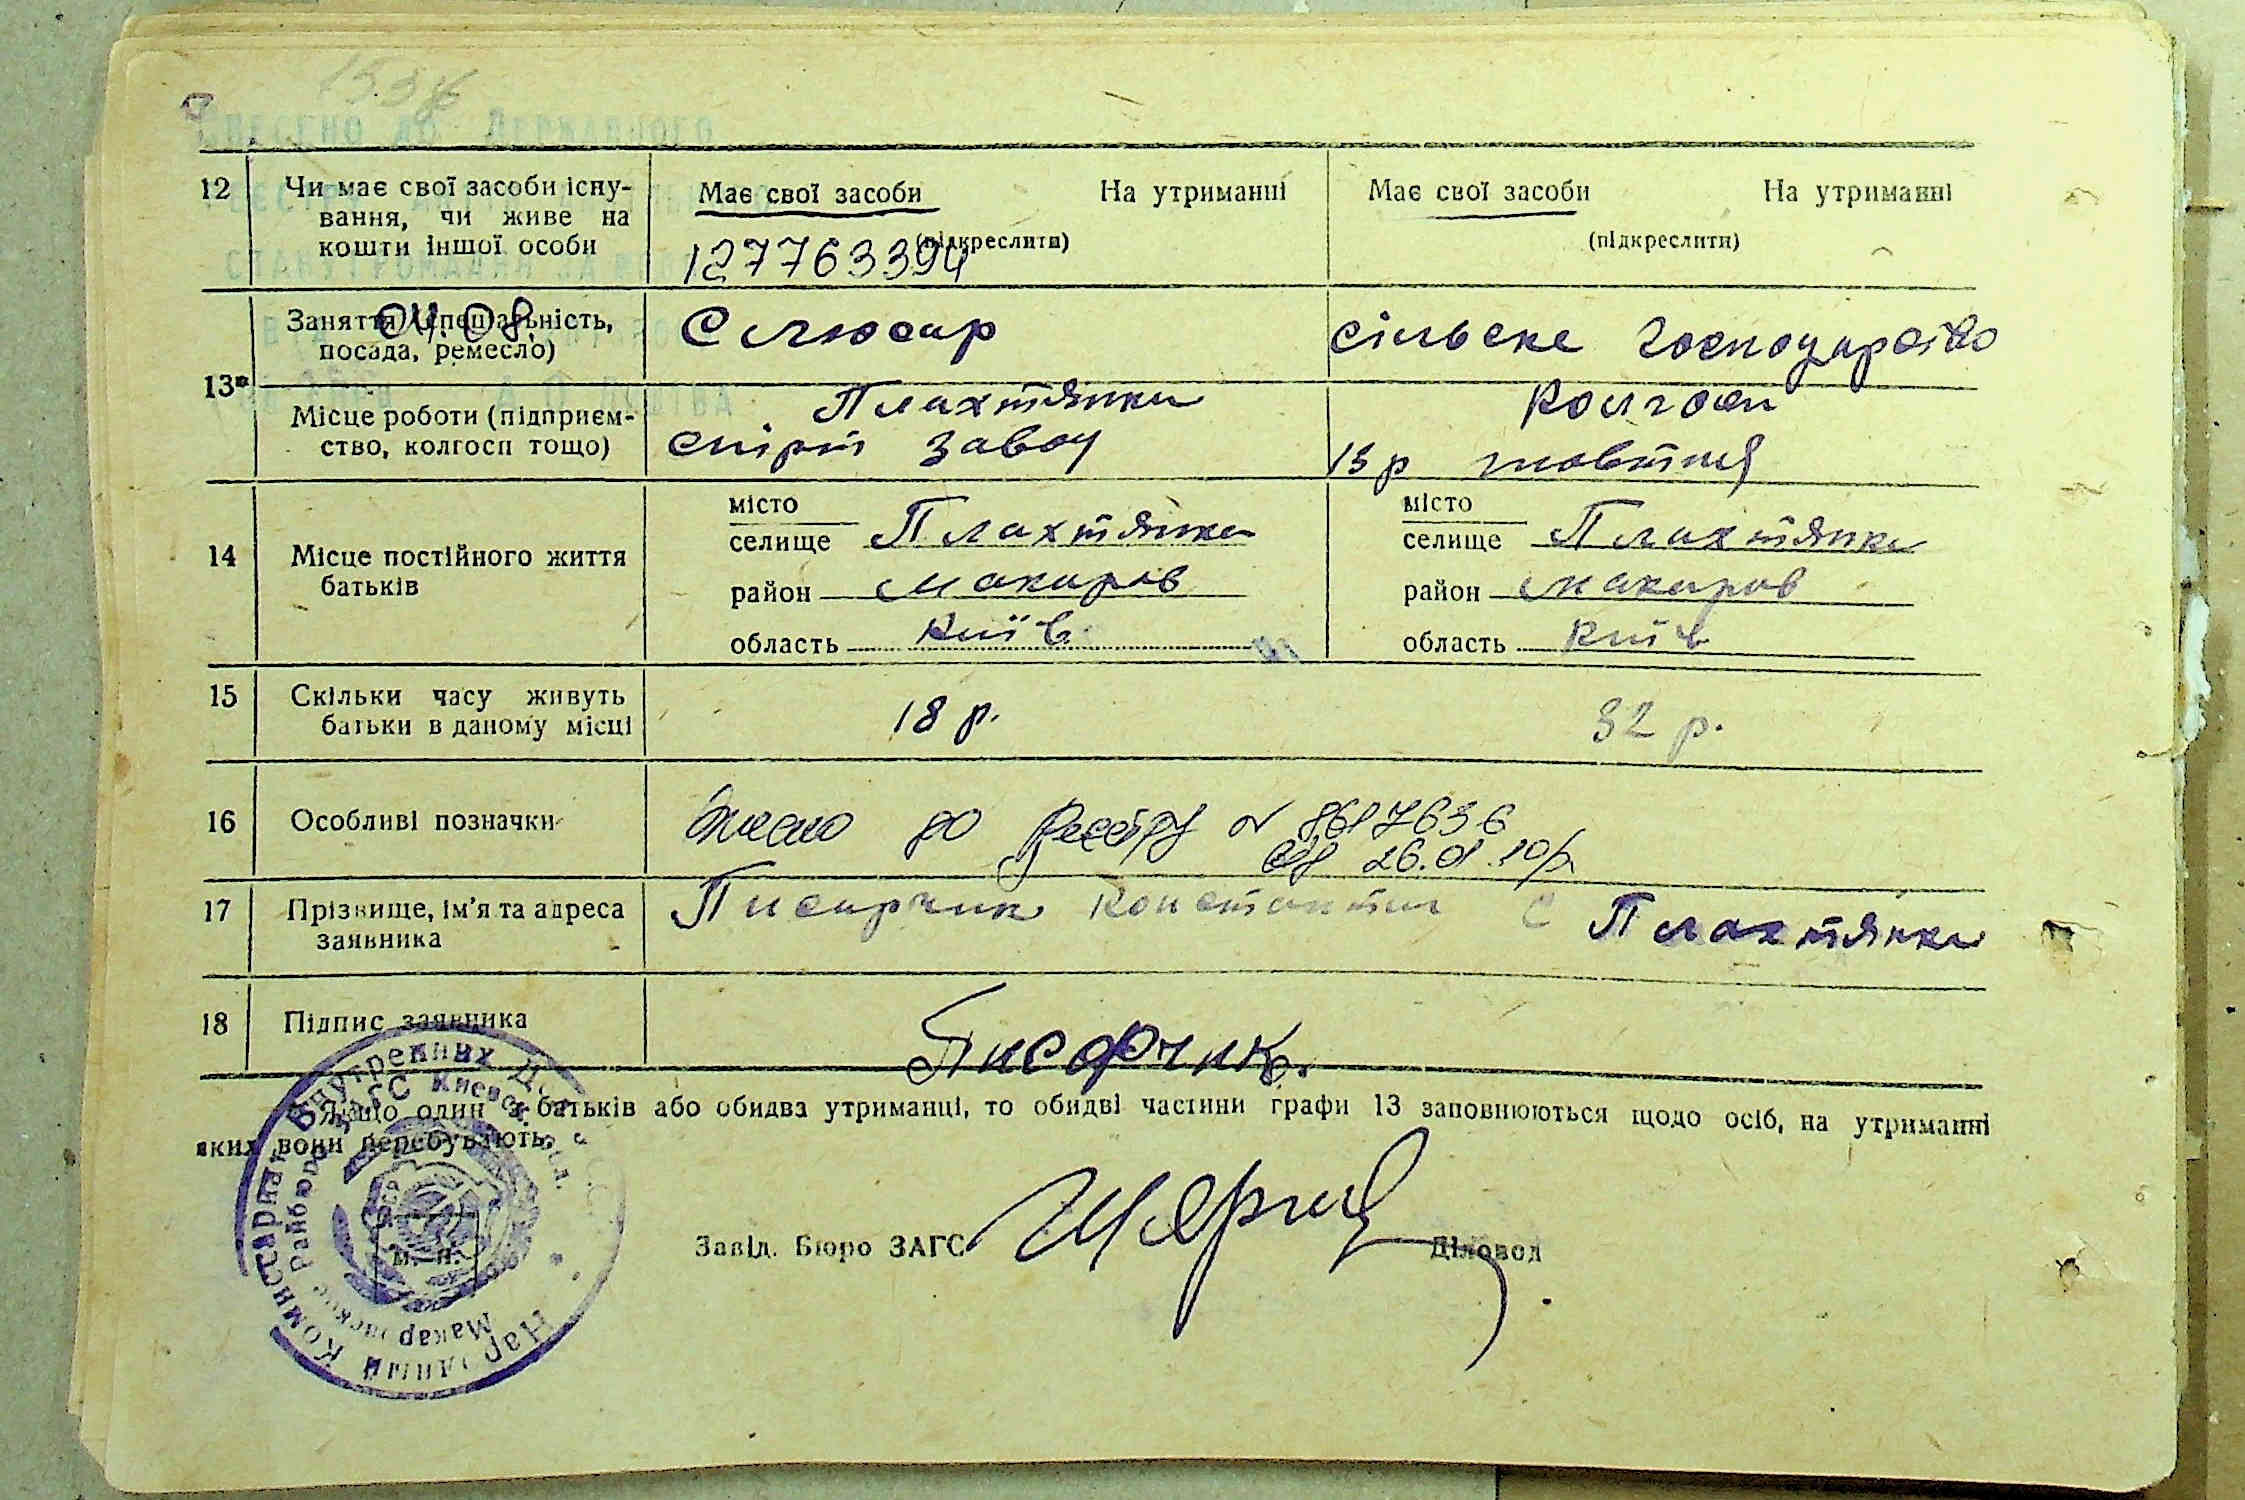 Внесено до Державного
12 Чи має свої засоби існу-
вання, чи живе на
кошти іншої особи
Має свої засоби На утриманні
(підкреслити)
127763394
Має свої засоби На утриманні
(підкреслити)
04.08.
13* Заняття (спеціальність,
посада, ремесло)
Слюсар
сільське господарство
Місце роботи (підприєм-
ство, колгосп тощо)
Плахтянка
спірт завод
Колгосп
13 р жовтня
14 Місце постійного життя
батьків
місто
селище Плахтянка
район Макаров
область Київ
місто
селище Плахтянка
район Макаров
область Київ
15 Скільки часу живуть
батьки в даному місці
18 р.
32 р.
16 Особливі позначки
Внесено до реєстру № 8617636
від 26.01.10р
17 Прізвище, ім'я та адреса
заявника
Писарчик Константин с Плахтянка
18 Підпис заявника
Писарчик.
Якщо один з батьків або обидва утриманці, то обидві частини графи 13 заповнюються щодо осіб, на утриманні
яких вони перебувають.
Народный Комиссариат Внутренних Дел
Макаровское Райбюро ЗАГС Киевск. обл.
М. П.
Завід. Бюро ЗАГС
Діловод